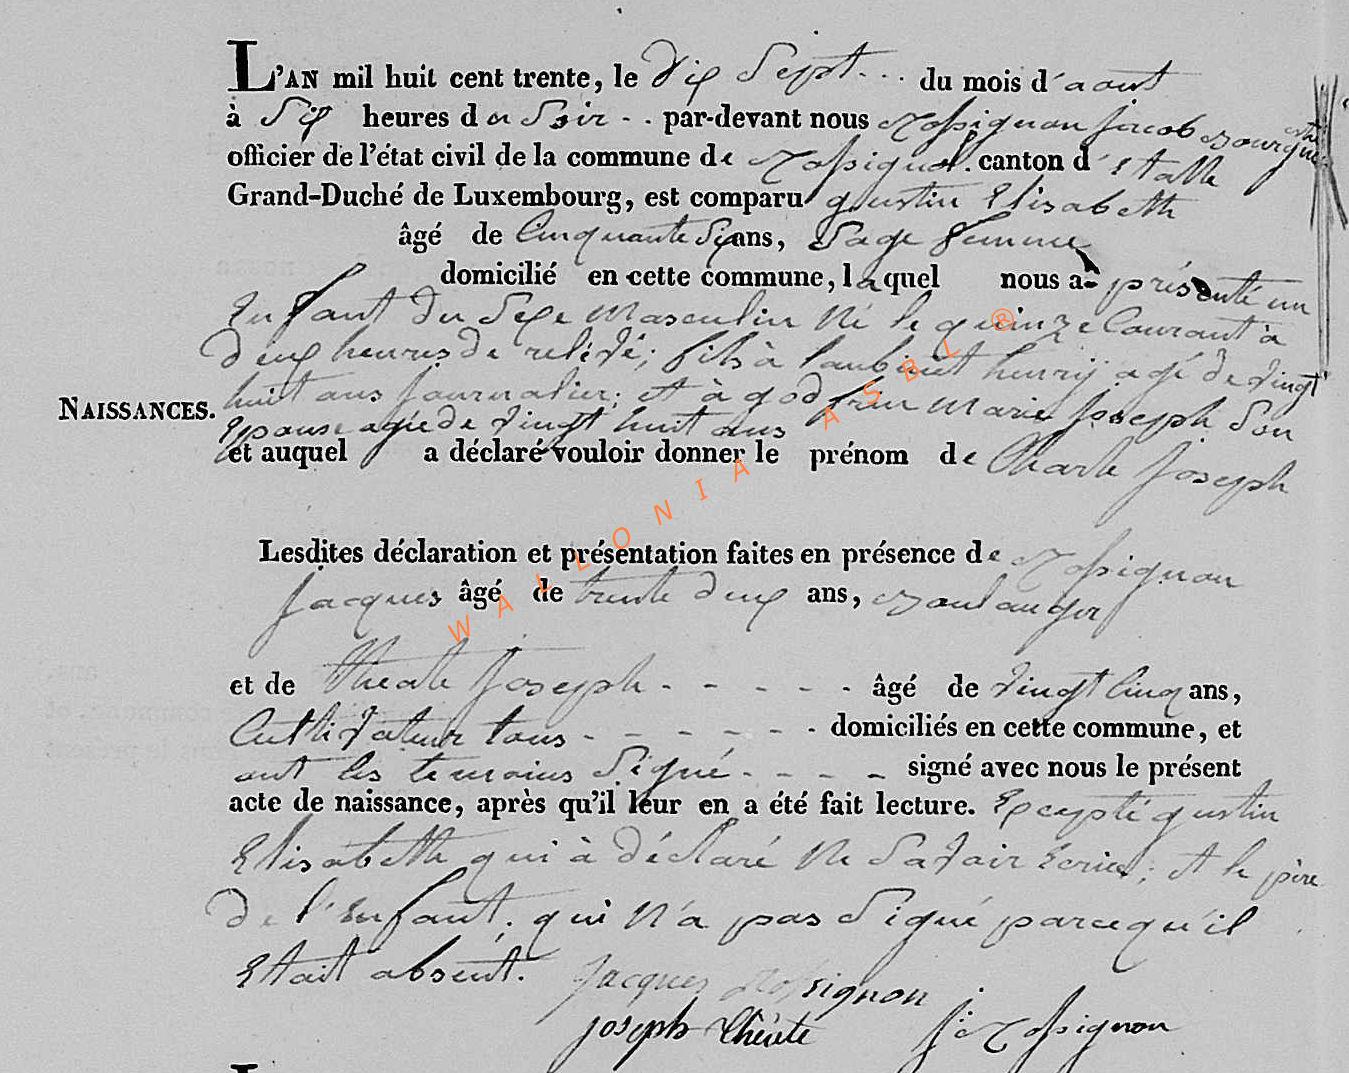 L'AN mil huit cent trente, le dix Sept du mois d'aout
à Six heures du Soir - - par-devant nous Rossignon Jacob Bourgue
officier de l'état civil de la commune de Rossignol. canton d'Etalle
Grand-Duché de Luxembourg, est comparu gustin Elisabeth
âgé de Cinquante Six ans, Sage femme
domicilié en cette commune, laquel nous a présenté un
Enfant du Sexe Masculin Né le quinze Courant à
deux heures de relévé; fils à Laubinet henry agé de vingt
NAISSANCES.
huit ans journalier; et à godfrin Marie Joseph Son
Epouse agée de vingt huit ans
et auquel a déclaré vouloir donner le prénom de Charle Joseph
Lesdites déclaration et présentation faites en présence de Rossignon
Jacques âgé de trente deux ans, Boulanger
et de Théate Joseph - - - - - âgé de vingt Cinq ans,
Cultivateur tous - - - - - - domiciliés en cette commune, et
ont les temoins Signé - - - - signé avec nous le présent
acte de naissance, après qu'il leur en a été fait lecture. Excepté gustin
Elisabeth qui à déclaré Ne Savoir Ecrire; et le père
De l'Enfant; qui N'a pas Signé parcequ'il
Etait absent. Jacques Rossignon
joseph thérite J: Rossignon
WALLONIA ASBL ®